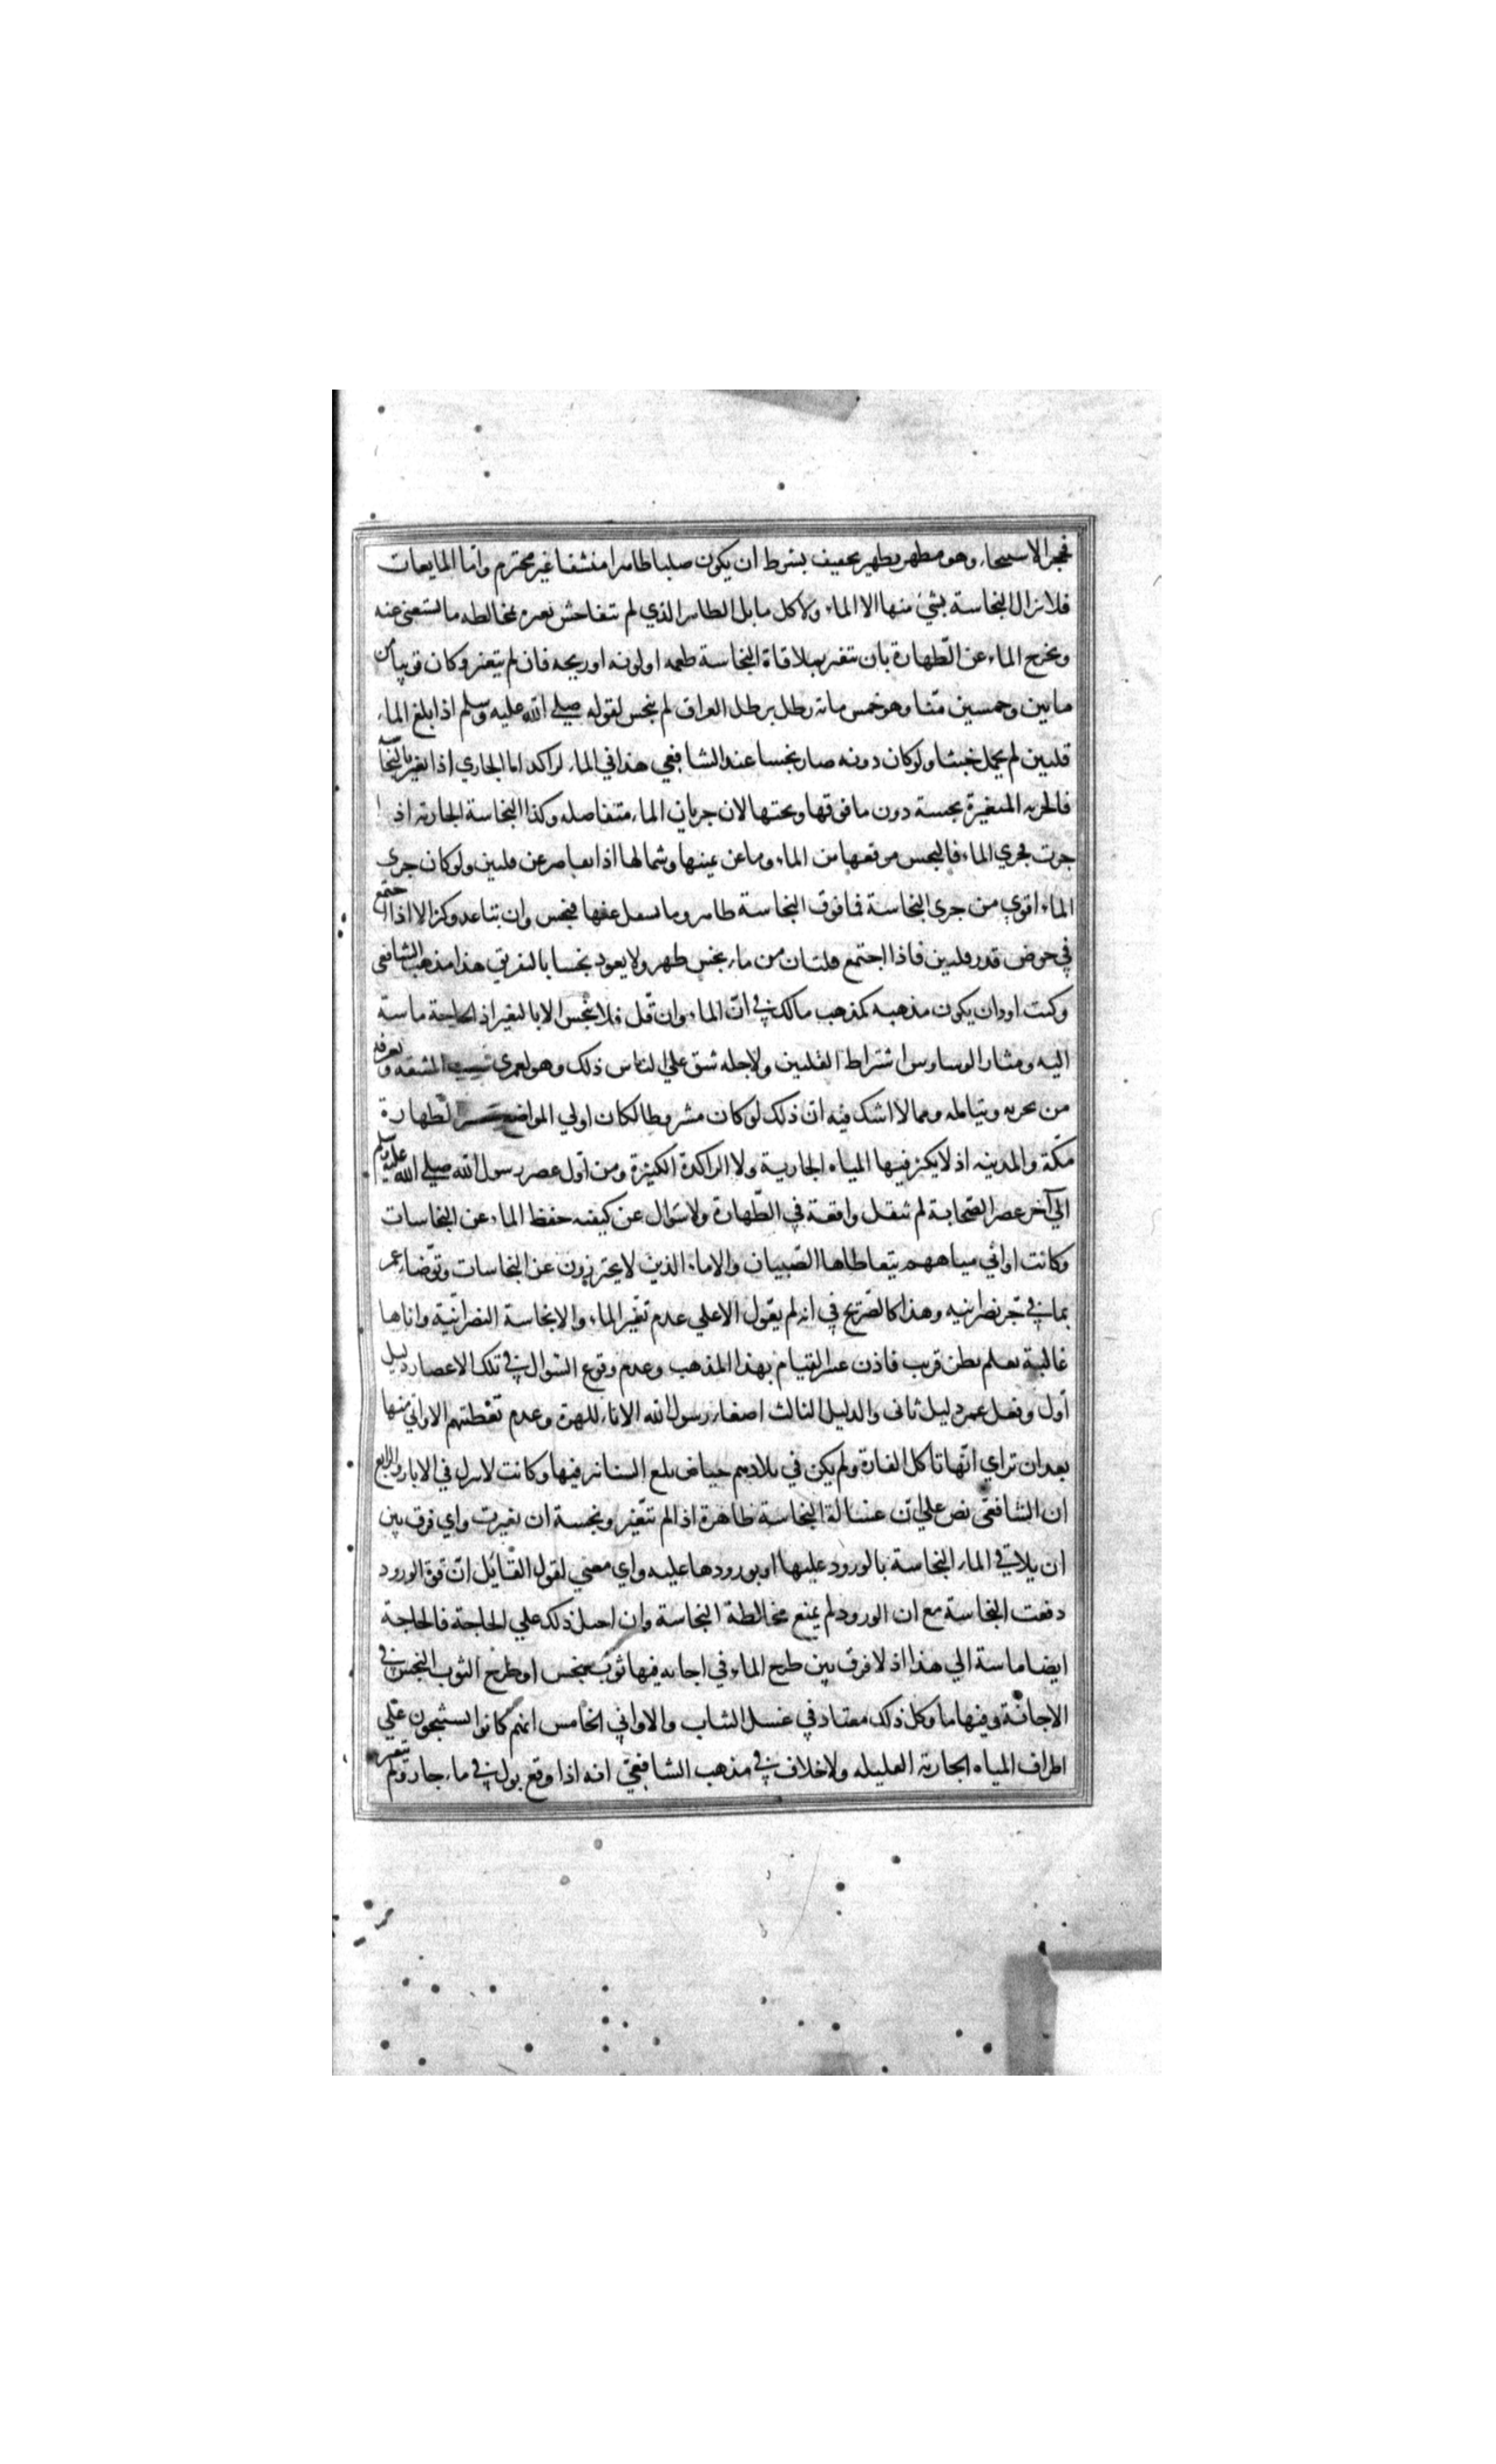 فحجر الاستنجاء وهو مطهر تطهير تخفيف بشرط ان يكون صلبا طاهرا منشفا غير محترم واما المايعات
فلا تزال النجاسة بشئ منها الا الماء ولا كل ما بل الطاهر الذي لم يتفاحش تغيره بمخالطه ما يستغنى عنه
ويخرج الماء عن الطهارة بان يتغير بملاقاة النجاسة طعمه او لونه او ريحه فان لم يتغير وكان قريبا من
مايتين وخمسين منّا وهو خمس ماتة رطل برطل العراق لم ينجس لقوله صلي الله عليه وسلم اذا بلغ الماء
قلتين لم يحمل خبثا ولو كان دونه صار نجسا عند الشافعي هذا في الماء الراكد اما الجاري اذا تغير بالنجاسة
فالجرية المتغيرة نجسة دون ما فوقها وتحتها لان جريات الماء متفاصله وكذا النجاسة الجارية اذا
جرت بمجري الماء فالنجس موقعها من الماء وما عن يمينها وشمالها اذا تقاصر عن قلتين ولو كان جري
الماء اقوي من جري النجاسة فما فوق النجاسة طاهر وما سفل عنها فنجس وان تباعد وكثر الا اذا اجتمع
في حوض قدر قلتين فاذا اجتمع قلتان من ماء نجس طهر ولا يعود نجسا بالتفريق هذا مذهب الشافعي
وكنت اود ان يكون مذهبه كمذهب مالك في انّ الماء وان قلّ فلا ينجس الا بالتغير اذ الحاجة ماسة
اليه ومثار الوساوس اشتراط القلتين ولاجله شق علي الناس ذلك وهو لعمري سبب المشقه ويعرفه
من يجربه ويتامله ومما لا اشك فيه ان ذلك لو كان مشروطا لكان اولي المواضع بتعسر الطهارة
مكّة والمدينه اذ لا يكثر فيها المياه الجارية ولا الراكدة الكثيرة ومن اول عصر رسول الله صلي الله عليه وسلم
الي آخر عصر الصّحابة لم تنقل واقعة في الطّهارة ولا سؤال عن كيفيه حفظ الماء عن النجاسات
وكانت اواني مياههم يتعاطاها الصّبيان والاماء الذين لا يحترزون عن النجاسات وتوضّاء عمر
بماء في جر نصرانيه وهذا كالصّريح في انه لم يعول الا علي عدم تغير الماء والا نجاسة النصرانيّة واناها
غالبة تعلم بظن قريب فاذن عسر القيام بهذا المذهب وعدم وقوع السّوال في تلك الاعصار دليل
أول وفعل عمر دليل ثاني والدليل الثالث اصغاء رسول الله الاناء للهرة وعدم تغطيتهم الاواني منها
بعد ان تراي انّها تاكل الفارة ولم يكن في بلادهم حياض تلغ السنانير فيها وكانت لا تنزل في الابار والرابع
ان الشّافعي نص علي انّ غسالة النجاسة طاهرة اذا لم تتغير ونجسة ان تغيرت واي فرق بين
ان يلاقي الماء النجاسة بالورود عليها او بورودها عليه واي معني لقول القايل ان قوة الورود
دفعت النجاسة مع ان الورود لم يمنع مخالطة النجاسة وان احيل ذلك علي الحاجة فالحاجة
ايضا ماسة الي هذا اذ لا فرق بين طرح الماء في اجانه فيها ثوب نجس او طرح الثوب النجس في
الاجانّة وفيها ما وكل ذلك معتاد في غسل الثياب والاواني الخامس انهم كانوا يستنجون علي
اطراف المياه الجارية القليله ولا خلاف في مذهب الشافعيّ انه اذا وقع بول في ماء جار ولم يتغير